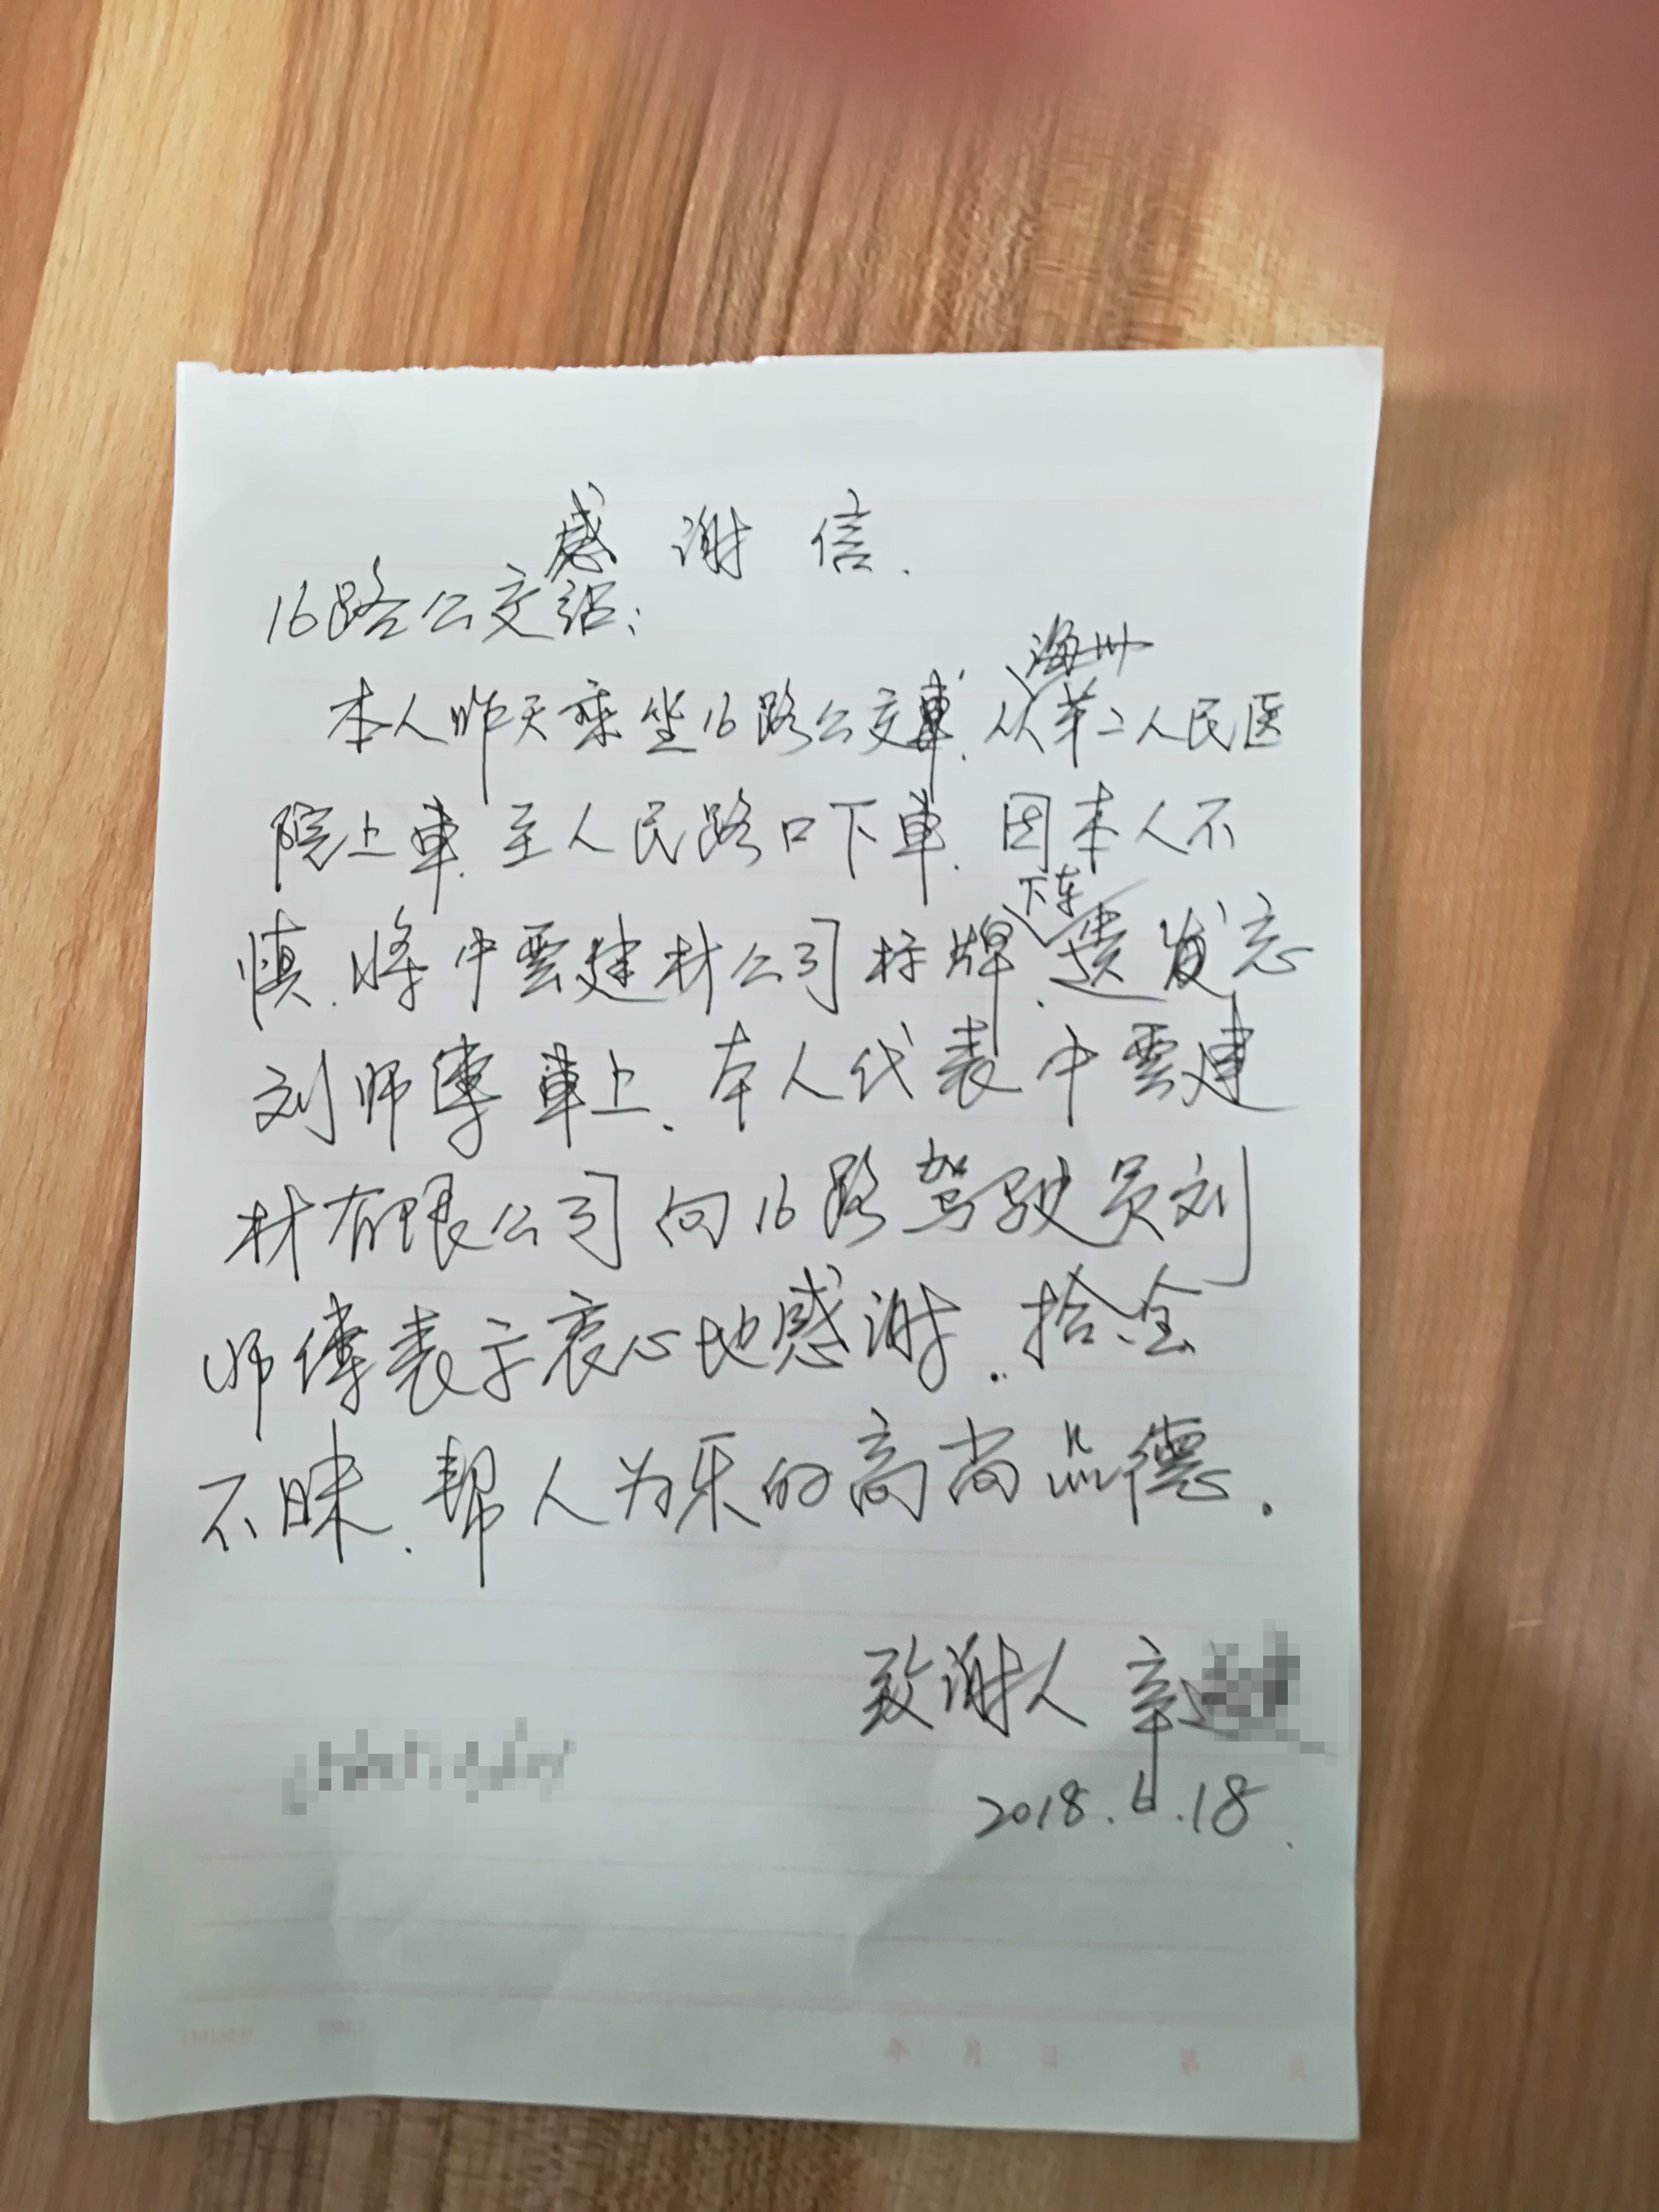 感谢信.
16路公交站:
本人昨天乘坐16路公交車.从海州第二人民医
院上車.至人民路口下車.因本人不
慎.将中雲建材公司标牌.下车遗忘
刘师傅車上.本人代表中雲建
材有限公司向16路驾驶员刘
师傅表示衷心地感谢.拾金
不昧.帮人为乐的高尚品德.
致谢人 辛
2018.6.18.